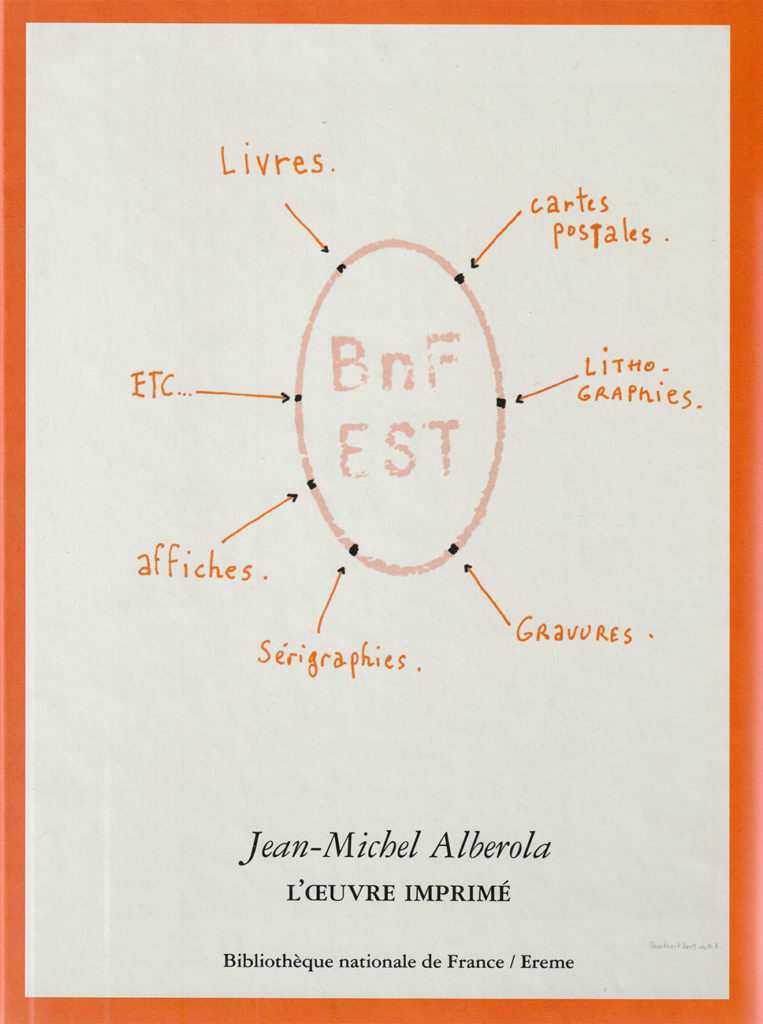 Livres.
cartes
postales.
BnF
EST
LITHO-
GRAPHIES.
ETC...
affiches.
GRAVURES.
Sérigraphies.
Jean-Michel Alberola
L'ŒUVRE IMPRIMÉ
Bibliothèque nationale de France / Ereme